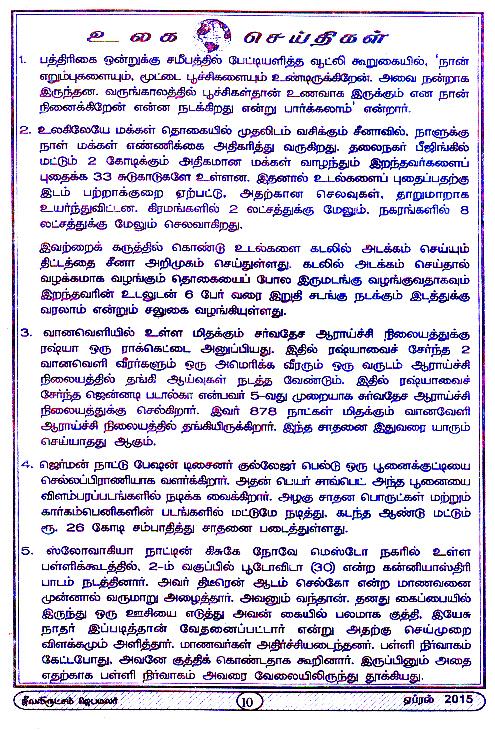 உலக செய்திகள்
1. பத்திரிகை ஒன்றுக்கு சமீபத்தில் பேட்டியளித்த வூட்லி கூறுகையில், 'நான்
எறும்புகளையும், மூட்டை பூச்சிகளையும் உண்டிருக்கிறேன். அவை நன்றாக
இருந்தன. வருங்காலத்தில் பூச்சிகள்தான் உணவாக இருக்கும் என நான்
நினைக்கிறேன் என்ன நடக்கிறது என்று பார்க்கலாம்' என்றார்.
2. உலகிலேயே மக்கள் தொகையில் முதலிடம் வசிக்கும் சீனாவில், நாளுக்கு
நாள் மக்கள் எண்ணிக்கை அதிகரித்து வருகிறது. தலைநகர் பீஜிங்கில்
மட்டும் 2 கோடிக்கும் அதிகமான மக்கள் வாழ்ந்தும் இறந்தவர்களைப்
புதைக்க 33 சுடுகாடுகளே உள்ளன. இதனால் உடல்களைப் புதைப்பதற்கு
இடம் பற்றாக்குறை ஏற்பட்டு, அதற்கான செலவுகள், தாறுமாறாக
உயர்ந்துவிட்டன. கிரமங்களில் 2 லட்சத்துக்கு மேலும், நகரங்களில் 8
லட்சத்துக்கு மேலும் செலவாகிறது.
இவற்றைக் கருத்தில் கொண்டு உடல்களை கடலில் அடக்கம் செய்யும்
திட்டத்தை சீனா அறிமுகம் செய்துள்ளது. கடலில் அடக்கம் செய்தால்
வழக்கமாக வழங்கும் தொகையைப் போல இருமடங்கு வழங்குவதாகவும்
இறந்தவரின் உடலுடன் 6 பேர் வரை இறுதி சடங்கு நடக்கும் இடத்துக்கு
வரலாம் என்றும் சலுகை வழங்கியுள்ளது.
3. வானவெளியில் உள்ள மிதக்கும் சர்வதேச ஆராய்ச்சி நிலையத்துக்கு
ரஷ்யா ஒரு ராக்கெட்டை அனுப்பியது. இதில் ரஷ்யாவைச் சேர்ந்த 2
வானவெளி வீரர்களும் ஒரு அமெரிக்க வீரரும் ஒரு வருடம் ஆராய்ச்சி
நிலையத்தில் தங்கி ஆய்வுகள் நடத்த வேண்டும். இதில் ரஷ்யாவைச்
சேர்ந்த ஜென்னடி படால்கா என்பவர் 5-வது முறையாக சர்வதேச ஆராய்ச்சி
நிலையத்துக்கு செல்கிறார். இவர் 878 நாட்கள் மிதக்கும் வானவெளி
ஆராய்ச்சி நிலையத்தில் தங்கியிருக்கிறார். இந்த சாதனை இதுவரை யாரும்
செய்யாதது ஆகும்.
4. ஜெர்மன் நாட்டு பேஷன் டிசைனர் குல்லேஜர் பெல்டு ஒரு பூனைக்குட்டியை
செல்லப்பிராணியாக வளர்க்கிறார். அதன் பெயர் சாவ்பெட் அந்த பூனையை
விளம்பரப்படங்களில் நடிக்க வைக்கிறார். அழகு சாதன பொருட்கள் மற்றும்
கார்கம்பெனிகளின் படங்களில் மட்டுமே நடித்து, கடந்த ஆண்டு மட்டும்
ரூ. 26 கோடி சம்பாதித்து சாதனை படைத்துள்ளது.
5. ஸ்லோவாகியா நாட்டின் கிசுகே நோவே மெஸ்டோ நகரில் உள்ள
பள்ளிக்கூடத்தில், 2-ம் வகுப்பில் பூடோவிடா (30) என்ற கன்னியாஸ்திரி
பாடம் நடத்தினார். அவர் திடீரென ஆடம் செல்கோ என்ற மாணவனை
முன்னால் வருமாறு அழைத்தார். அவனும் வந்தான். தனது கைப்பையில்
இருந்து ஒரு ஊசியை எடுத்து அவன் கையில் பலமாக குத்தி, இயேசு
நாதர் இப்படித்தான் வேதனைப்பட்டார் என்று அதற்கு செய்முறை
விளக்கமும் அளித்தார். மாணவர்கள் அதிர்ச்சியடைந்தனர். பள்ளி நிர்வாகம்
கேட்டபோது, அவனே குத்திக் கொண்டதாக கூறினார். இருப்பினும் அதை
எதற்காக பள்ளி நிர்வாகம் அவரை வேலையிலிருந்து தூக்கியது.
ஜீவவிருட்சம் ஜெபமலர்
10
ஏப்ரல் 2015